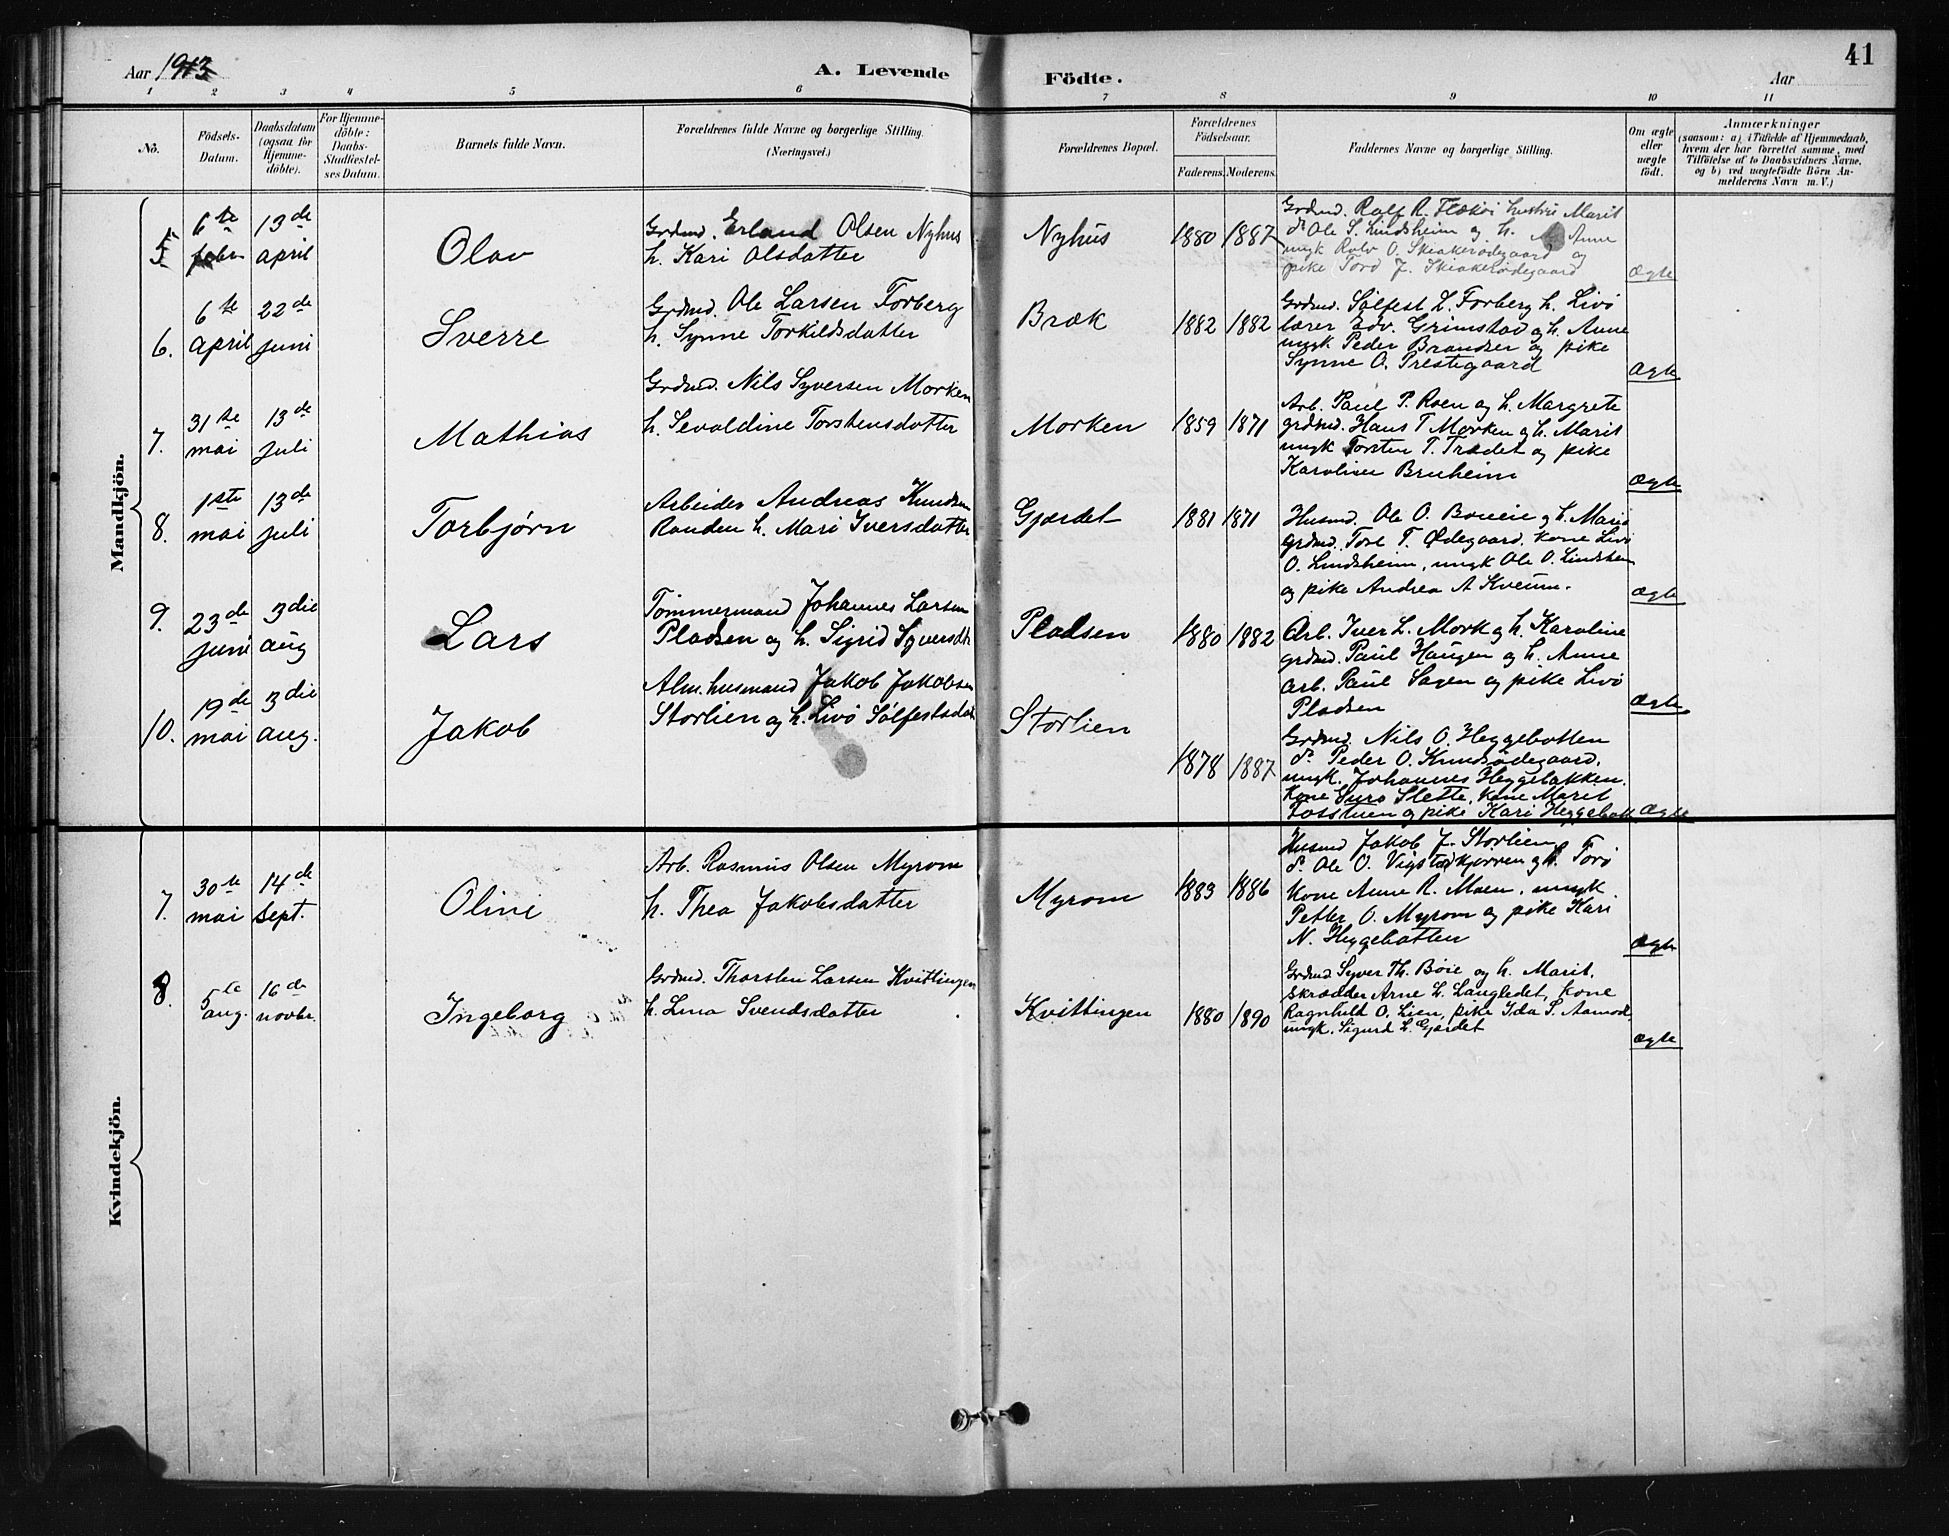 Aar 1913
A. Levende Födte.
Aar
41
1 2 3 4 5 6 7 8 9 10 11
No.
Födsels-Datum.
Daabsdatum (ogsaa for Hjemme-döbte).
For Hjemme-döbte: Daabs-Stadfæstel-ses Datum.
Barnets fulde Navn.
Forældrenes fulde Navne og borgerlige Stilling. (Næringsvei.)
Forældrenes Bopæl.
Forældrenes Födselsaar.
Faderens. Moderens.
Faddernes Navne og borgerlige Stilling.
Om ægte eller uægte födt.
Anmærkninger
(saasom: a) i Tilfælde af Hjemmedaab, hvem der har forrettet samme, med Tilföielse af to Daabsvidners Navne, og b) ved uægtefödte Börn An-melderens Navn m. V.)
Mandkjön.
5. 6te febr. 13de april
Olav
Grdmd. Erland Olsen Nyhus
h. Kari Olsdatter
Nyhus
1880 1887
Grdmd. Rolf R. Flækøi hustru Marit
do Ole S. Lindsheim og h. Anne
ungk Rolv O. Skiakerødegaard og
pike Tord J. Skiakerødegaard
Ægte
6. 6te april 22de juni
Sverre
Grdmd. Ole Larsen Forberg
h. Synne Torkildsdatter
Bræk
1882 1882
Grdmd. Sølfest L. Forberg h. Livö
lærer Edv. Grimstad og h. Anne
ungk Peder Brandser og pike
Synne O. Prestegaard
Ægte
7. 31te mai 13de juli
Mathias
Grdmd. Nils Syversen Morken
h. Sevaldine Torstensdatter
Morken
1859 1871
Arb. Paul P. Roen og h. Margrete
grdmd. Hans T Morken og h. Marit
ungk Torsten T. Trædet og pike
Karoline Bruheim
Ægte
8. 1ste mai 13de juli
Torbjørn
Arbeider Andreas Knudsen
Randen h. Mari Iversdatter
Gjærdet
1881 1871
Husmd. Ole O. h. Mari
grdmd. Tore T. Ødegaard. Kone Livö
O. Lindsheim, ungk Ole O. Lindsheim
og pike Andrea A Kveum.
Ægte
9. 23de juni 3die aug
Lars
Tömmermand Johannes Larsen
Pladsen og h. Sigrid Syversdtr
Pladsen
1880 1882
Arb. Iver L. Mork og h. Karoline
grdmd. Paul Haugen og h. Anne
arb. Paul Sagen og pike Livö
Pladsen
Ægte
10. 19de mai 3die aug.
Jakob
Alm. husmand Jakob Jakobsen
Storlien og h. Livö Sölfestsdat
Storlien
1878 1887
Grdmd. Nils O. Heggebotten
do Peder O. Knudsødegaard,
ungk. Johannes Heggebakken.
Kone Guro Slette, Kone Marit
Fosstuen og pike Kari Heggebott
Ægte
Kvindekjön.
7. 30te mai 14de sept.
Oline
Arb. Rasmus Olsen Myrom
h. Thea Jakobsdatter
Myrom
1883 1886
Husmd Jakob J. Storlien
do Ole O. Vigstadkjørren og h. Torö
Kone Anne R. Moen, ungk
Petter O. Myrom og pike Kari
N. Heggebotten
Ægte
8. 5te aug. 16de novbr.
Ingeborg
Grdmd. Thorsten Larsen Kvittingen
h. Lina Svendsdatter
Kvittingen
1880 1890
Grdmd Syver Th. Böie og h. Marit.
skrædder Arne L. Langledet, kone
Ragnhild O. Lien, pike Ida S. Aamot
ungk. Sigurd L. Gjærdet
Ægte